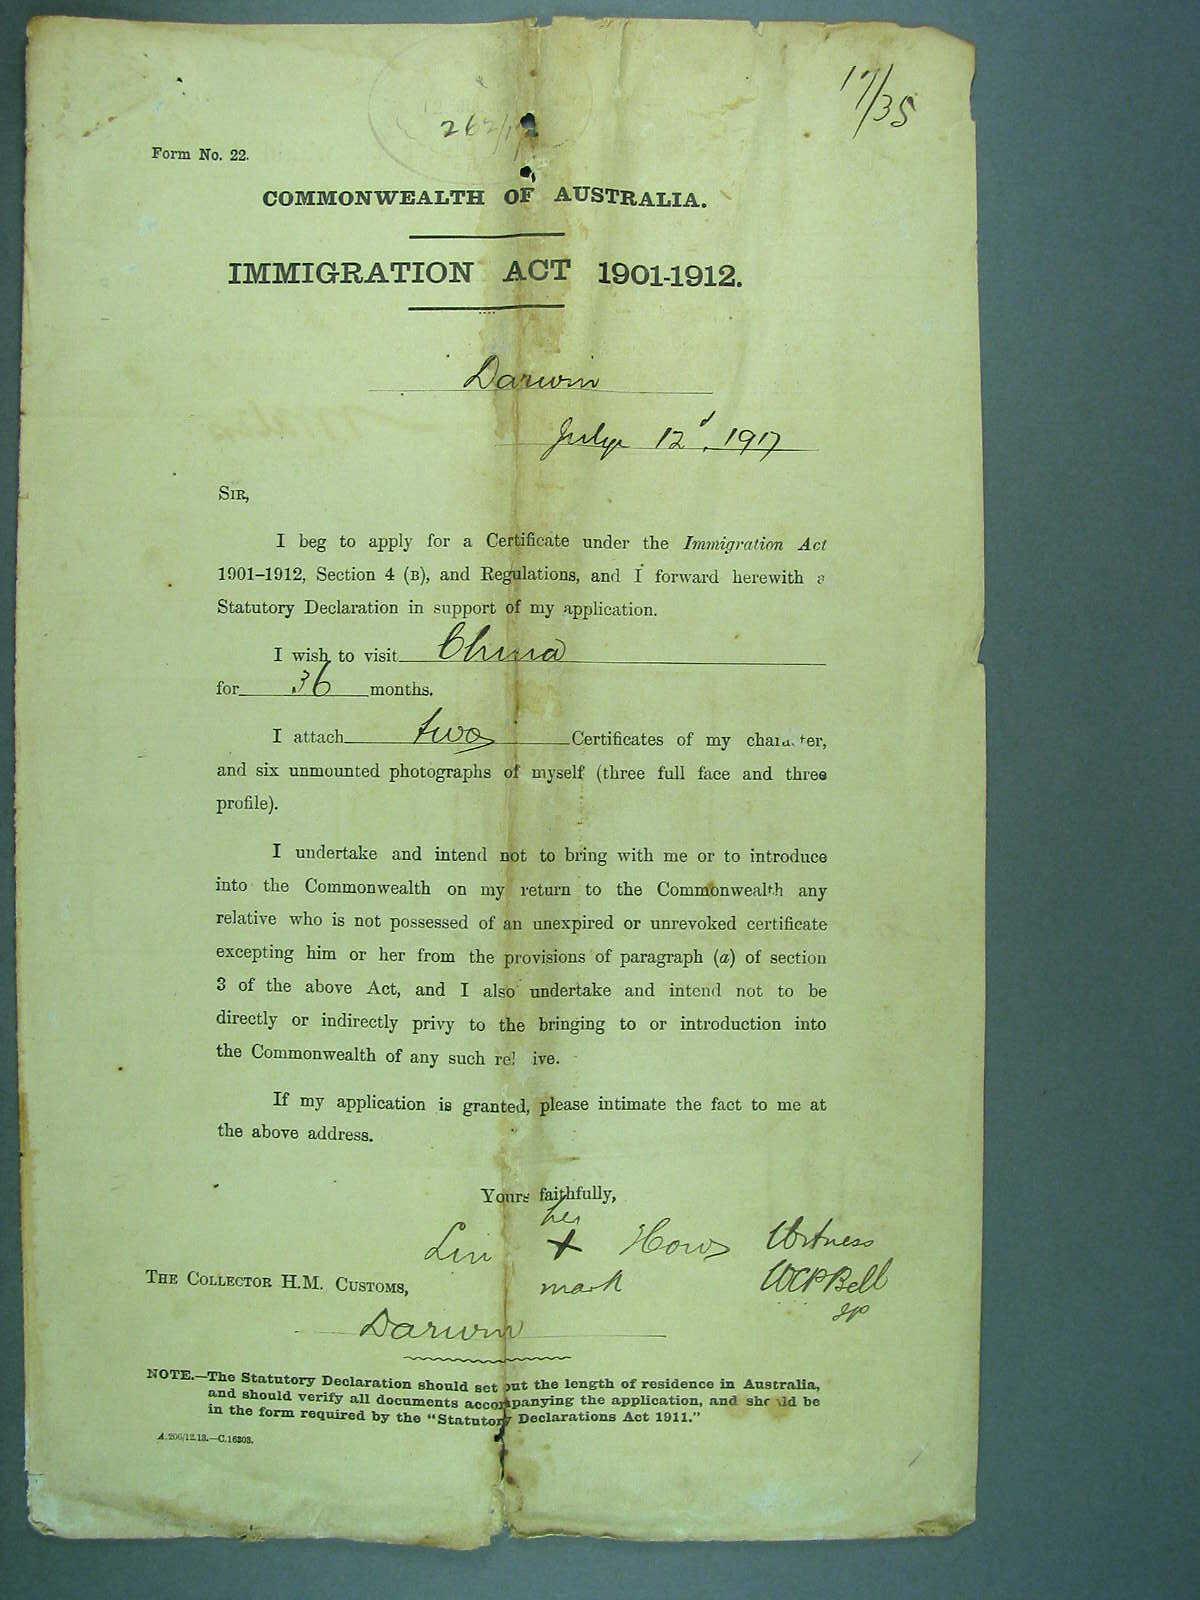 17/35
262/17
Form No. 22.
COMMONWEALTH OF AUSTRALIA.
IMMIGRATION ACT 1901-1912.
Darwin
July 12d, 1917
SIR,
I beg to apply for a Certificate under the Immigration Act
1901–1912, Section 4 (B), and Regulations, and I forward herewith a
Statutory Declaration in support of my application.
I wish to visit China
for 36 months.
I attach two Certificates of my character,
and six unmounted photographs of myself (three full face and three
profile).
I undertake and intend not to bring with me or to introduce
into the Commonwealth on my return to the Commonwealth any
relative who is not possessed of an unexpired or unrevoked certificate
excepting him or her from the provisions of paragraph (a) of section
3 of the above Act, and I also undertake and intend not to be
directly or indirectly privy to the bringing to or introduction into
the Commonwealth of any such rel ive.
If my application is granted, please intimate the fact to me at
the above address.
Yours faithfully,
her
Lin + How Witness
mark WCPBell
JP
THE COLLECTOR H.M. CUSTOMS,
Darwin
NOTE.—The Statutory Declaration should set out the length of residence in Australia,
and should verify all documents accompanying the application, and should be
in the form required by the "Statutory Declarations Act 1911."
A.200/12.13.—C.16303.